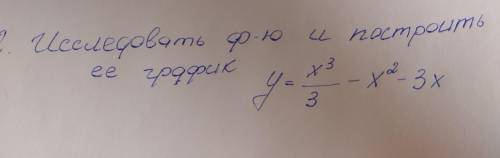 2. Исследовать ф-ю и построить
ее график y = x³/3 - x² - 3x